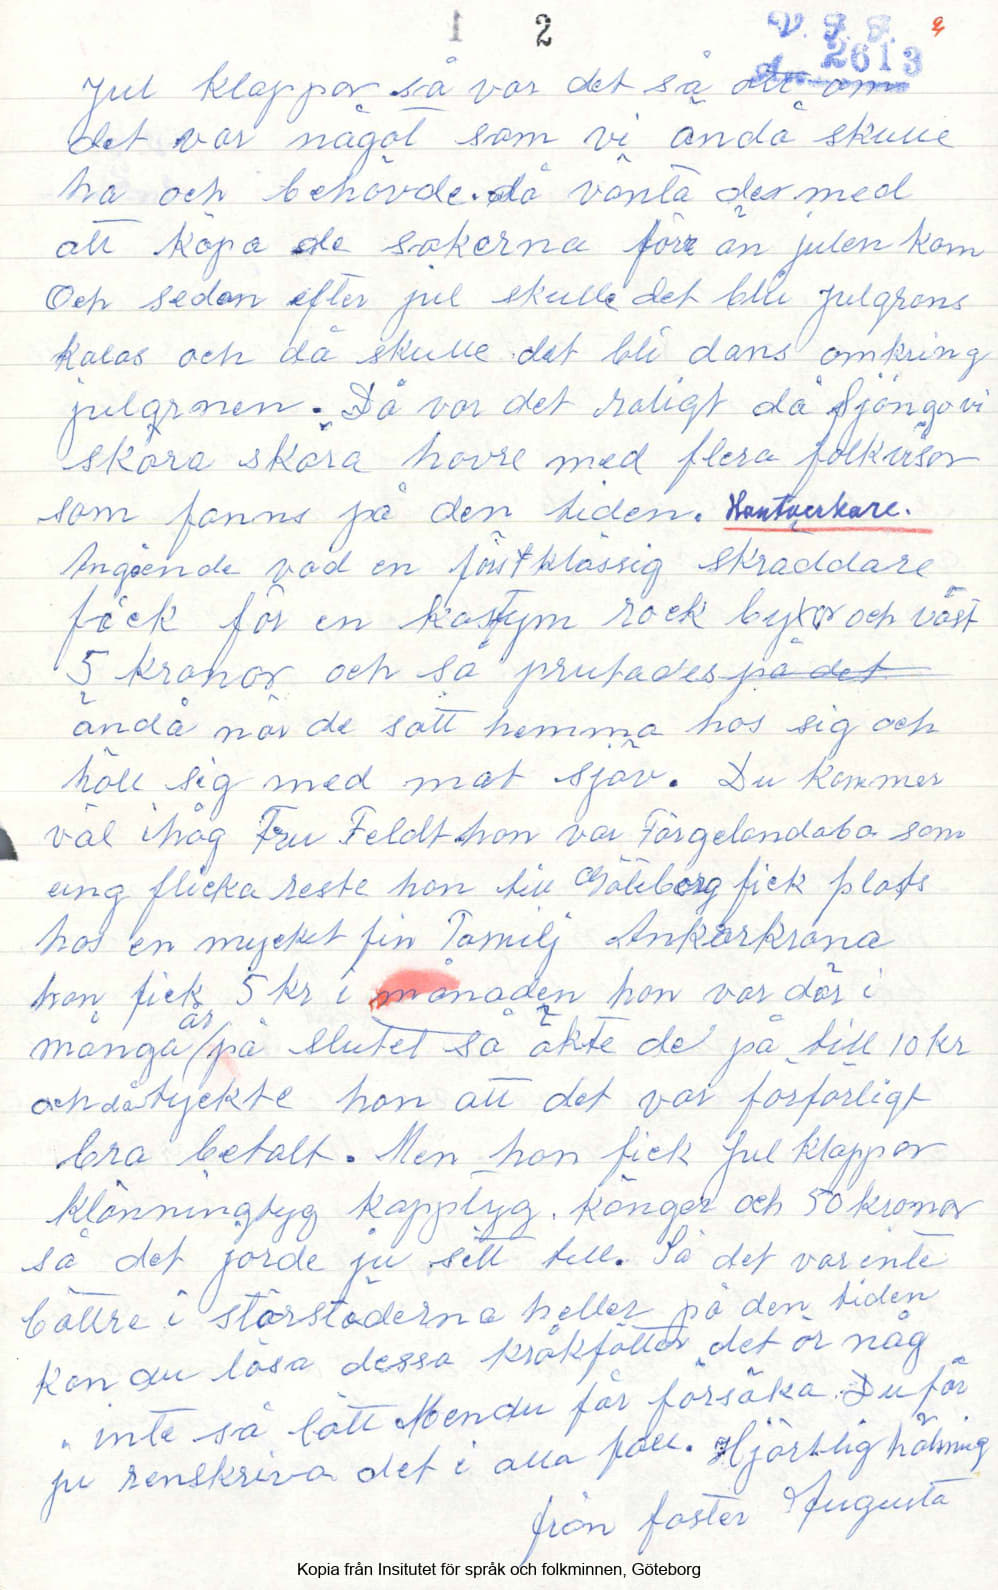 1 2
V. F. F.
2613
2
Jul klappor så var det så att om
det var något som vi ändå skulle
ha och behövde. då vänta de med
att köpa de sakerna förr än julen kom
Och sedan efter jul skulle det bli julgrans
kalas och då skulle det bli dans omkring
julgrnen. Då var det roligt då sjöngo vi
skära skära havre med flera folkvisor
som fanns på den tiden. Hantverkare.
Angående vad en förstklassig skräddare
fick för en kostym rock byxor och väst
5 kronor och så prutades på det
ändå när de satt hemma hos sig och
höll sig med mat sjäv. Du kommer
väl ihåg Fru Feldt hon var Färgelandabo som
ung flicka reste hon till Göteborg fick plats
hos en mycket fin Familj Ankarkrona
hon fick 5 kr i månaden hon var där i
många år på slutet så ökte de på till 10 kr
och då tyckte hon att det var förfärligt
bra betalt. Men hon fick Jul klappor
klänningtyg kapptyg. kängor och 50 kronor
så det jorde ju sitt till. Så det var inte
bättre i storstäderna heller på den tiden
kan du läsa dessa kråkfötter det är någ
inte så lätt Men du får försöka. Du får
ju renskriva det i alla fall. Hjärtlig hälsning
från faster Augusta
Kopia från Insitutet för språk och folkminnen, Göteborg